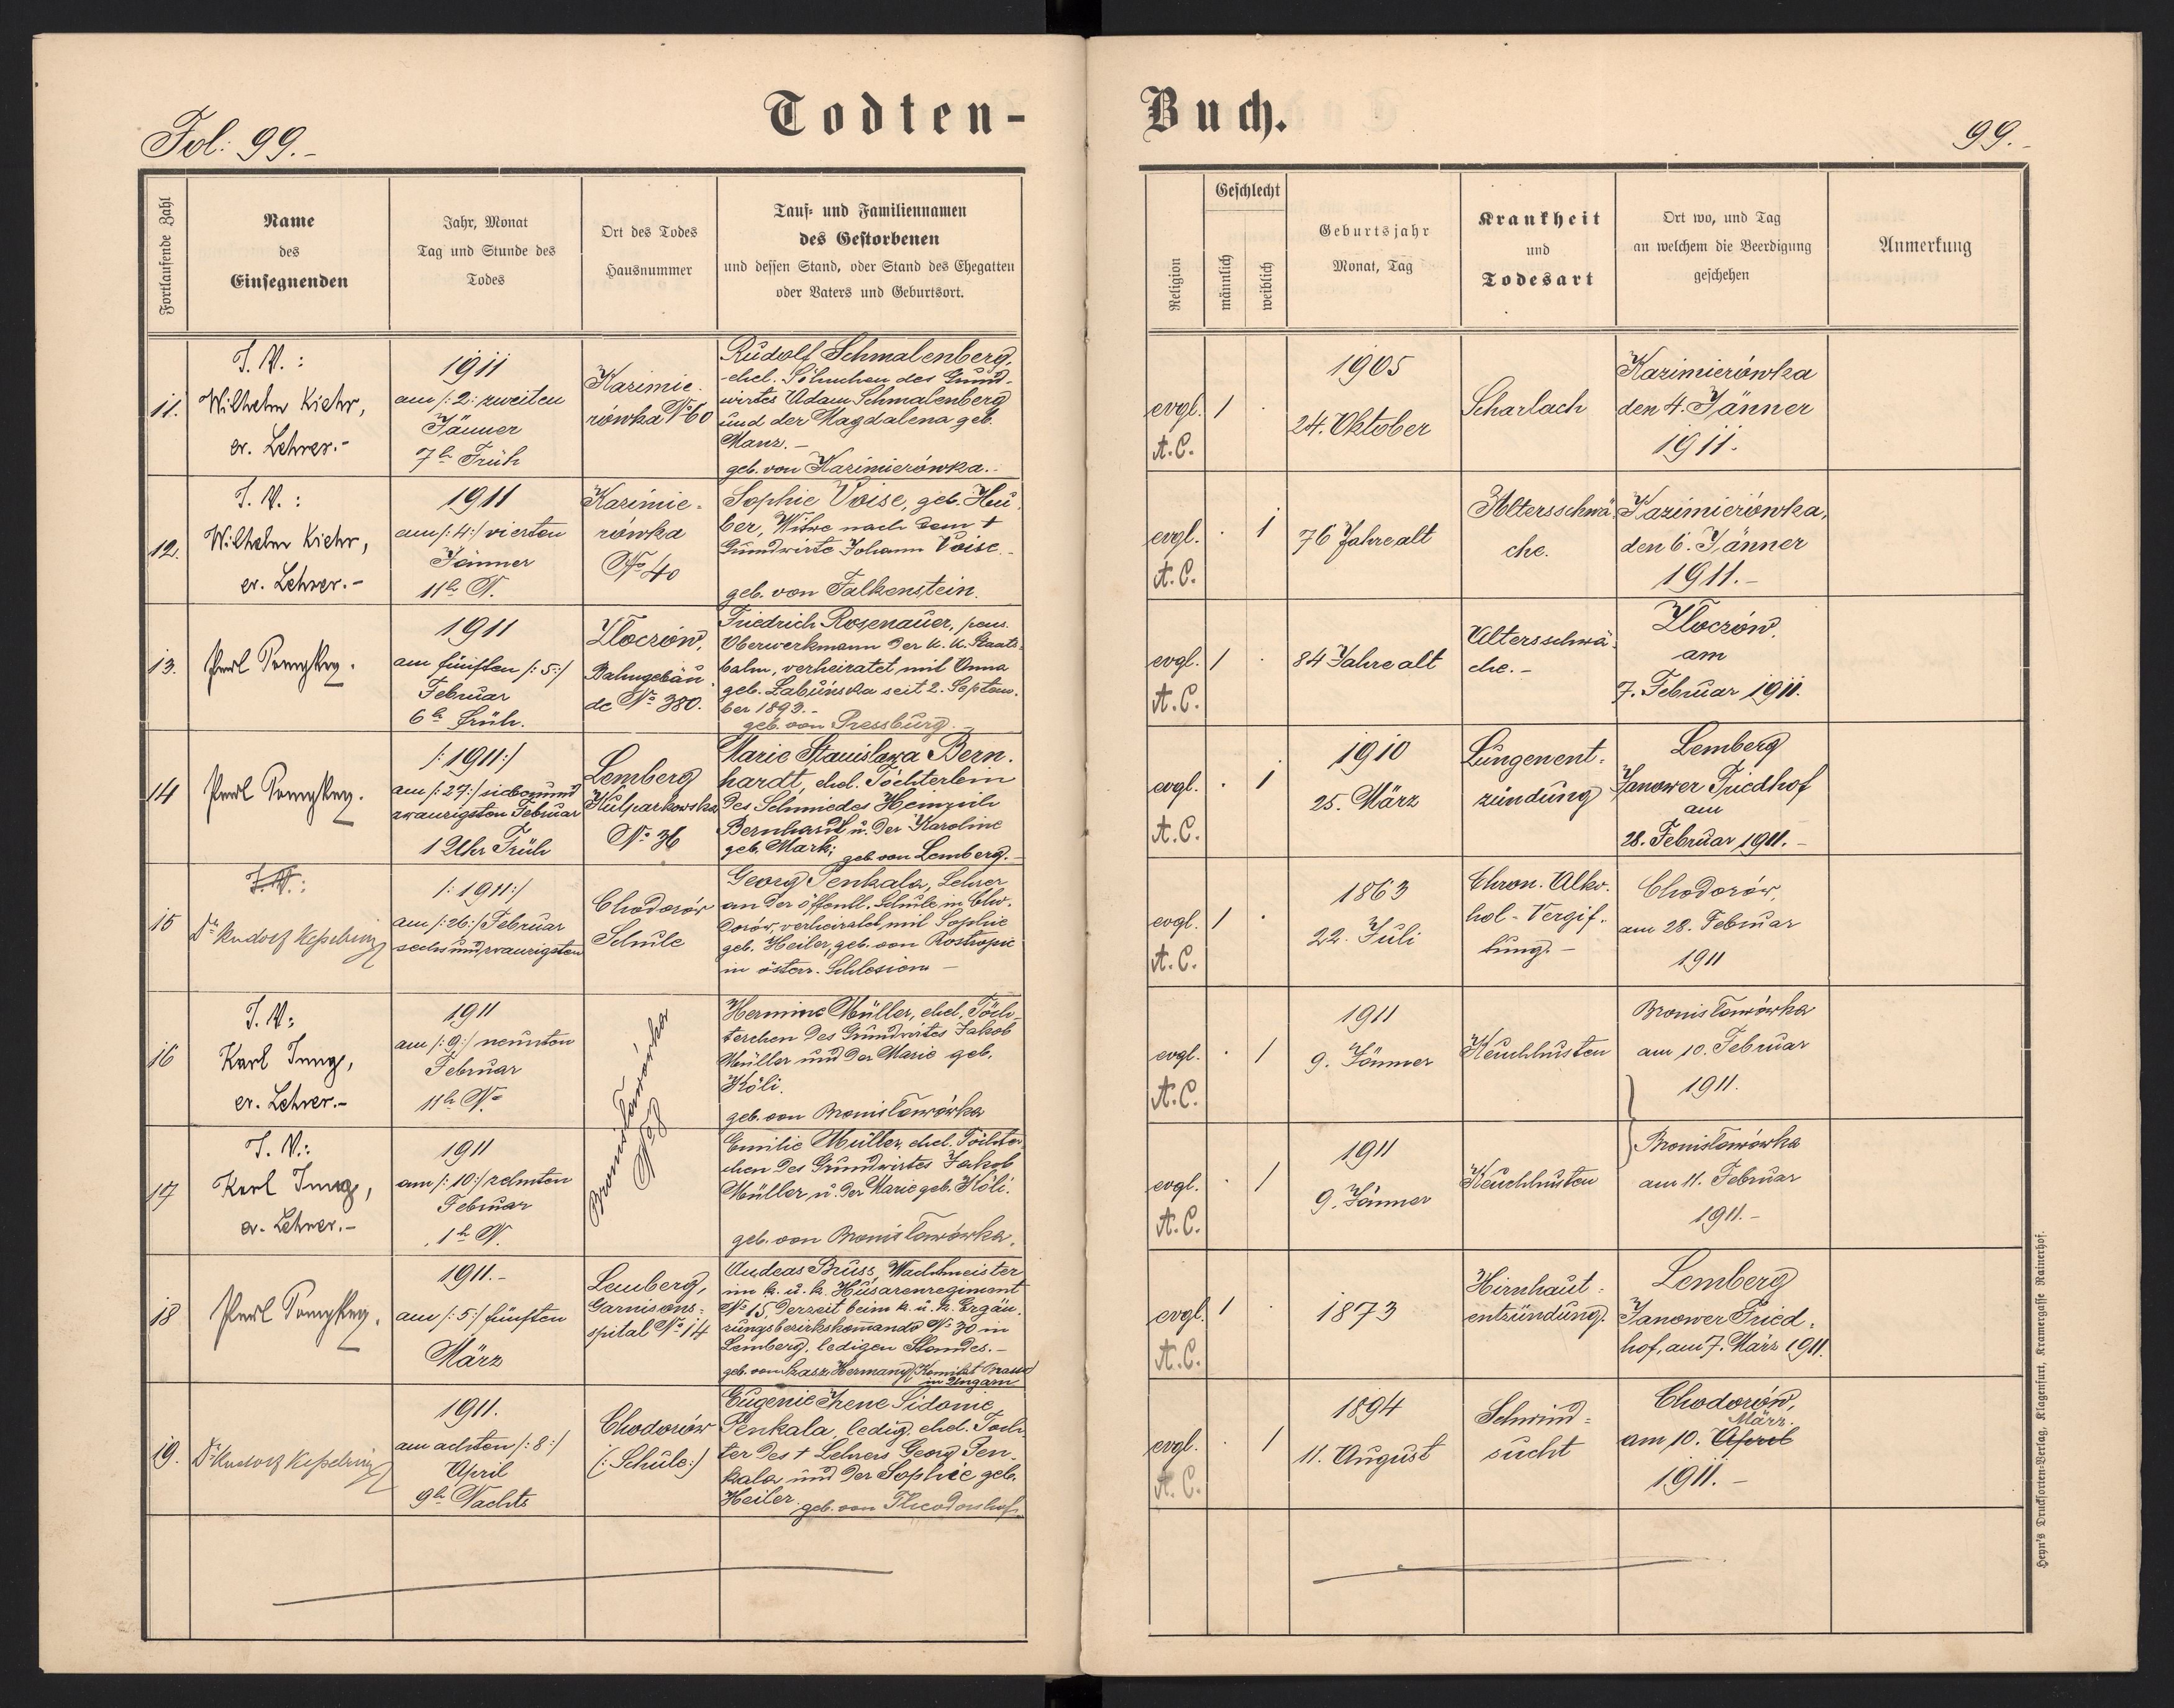 Todten-
Buch.
Fol: 99.-
99.-
Fortlaufende Zahl
Name
des
Einsegnenden
Jahr, Monat
Tag und Stunde des
Todes
Ort des Todes
Hausnummer
Tauf- und Familiennamen
des Gestorbenen
und dessen Stand, oder Stand des Ehegatten
oder Vaters und Geburtsort.
Religion
Geschlecht
männlich
weiblich
Geburtsjahr
Monat, Tag
Krankheit
und
Todesart
Ort wo, und Tag
an welchem die Beerdigung
geschehen
Anmerkung
11.
I. V.:
Wilhelm Kiehr,
ev. Lehrer.-
1911
am /:2:/ zweiten
Jänner
7h Früh
Kazimie-
rówka No 60
Rudolf Schmalenberg,
ehel. Söhnchen des Grund-
wirtes Adam Schmalenberg
und der Magdalena geb.
Manz.-
geb. von Kazimierówka.-
evgl.
A.C.
1
.
1905
24. Oktober
Scharlach
Kazimierówka
den 4. Jänner
1911.
12.
I. V.:
Wilhelm Kiehr,
ev. Lehrer.-
1911
am /:4:/ vierten
Jänner
11h N.
Kazimie-
rówka
No 40
Sophie Voise, geb. Hu-
ber, Witwe nach dem †
Grundwirte Johann Voise.-
geb. von Falkenstein.
evgl.
A.C.
.
1
76 Jahre alt
Altersschwä-
che.
Kazimierówka,
den 6. Jänner
1911.-
13.
1911
am fünften /:5:/
Februar
6h früh.
Zloczów,
Bahngebäu-
de No 380.
Friedrich Rosenauer, pens.
Oberwerkmann der k. k. Staats-
bahn, verheiratet mit Anna
geb. Labuńska seit 2. Septem-
ber 1893.-
geb. von Pressburg.-
evgl.
A.C.
1
.
84 Jahre alt
Altersschwä-
che.-
Zloczów,
am
7. Februar 1911.
14
/:1911:/
am /:27:/ siebenund
zwanzigsten Februar
1 Uhr Früh
Lemberg
Kulparkowska
No 36
Marie Stanislawa Bern-
hardt, ehel. Töchterlein
des Schmiedes Heinrich
Bernhardt u. der Karoline
geb. Mark; geb. von Lemberg.-
evgl.
A.C.
.
1
1910
25. März
Lungenent-
zündung
Lemberg
Janower Friedhof
am
28. Februar 1911.-
15
I. V.:
Dr Rudolf Kesselring
/:1911:/
am /:26:/ Februar
sechsundzwanzigsten
Chodorów
Schule
Georg Penkala, Lehrer
an der öffentl. Schule in Cho-
dorów, verheiratet mit Sophie
geb. Heiler, geb. von
in österr. Schlesien -
evgl.
A.C.
1
.
1863
22. Juli
Chron. Alko-
hol-Vergif-
tung.-
Chodorów,
am 28. Februar
1911
16
I. V:
Karl Jung,
ev. Lehrer.-
1911
am /:9:/ neunten
Februar
11h N.
Bronisławówka
No 8
Hermine Müller, ehel. Töch-
terchen des Grundwirtes Jakob
Müller und der Marie geb.
Köli.
geb. von Bronisławówka
evgl.
A.C.
.
1
1911
9. Jänner
Keuchhusten
Bronisławówka
am 10. Februar
1911.
17
I. V.:
Karl Jung,
ev. Lehrer.-
1911
am /:10:/ zehnten
Februar
1h N.
Emilie Müller, ehel. Töchter-
chen des Grundwirtes Jakob
Müller, u. der Marie geb. Köli.
geb. von Bronisławówka.
evgl.
A.C.
.
1
1911
9. Jänner
Keuchhusten
Bronisławówka
am 11. Februar
1911.-
18
1911.-
am /:5:/ fünften
März
Lemberg,
Garnisons-
spital No 14
Andreas Bruss, Wachtmeister
im k. u. k. Husarenregiment
No 15, derzeit beim k. u. k. Ergän-
zungsbezirkskommando No 30 in
Lemberg, ledigen Standes.-
geb. von Szasz Hermany, Komitat
in Ungarn
evgl.
A.C.
1
.
1873
Hirnhaut-
entzündung.
Lemberg
Janower Fried-
hof, am 7. März 1911.
19.
Dr Rudolf Kesselring
1911.
am achten /:8:/
April
9h Nachts
Chodorów
(:Schule:)
Eugenie Irene Sidonie
Penkala, ledig, ehel. Toch-
ter des † Lehrers Georg Pen-
kala und der Sophie geb.
Heiler. geb. von Theodorshof.
evgl.
A.C.
.
1
1894
11. August
Schwind-
sucht
Chodorów,
März.
am 10. April
1911.-
Heyn's Drucksorten-Verlag, Klagenfurt, Kramergasse Rainerhof.